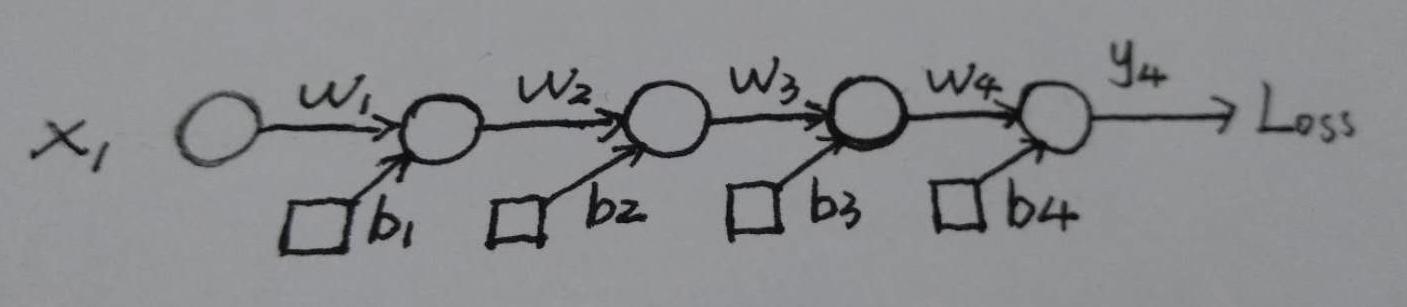 x₁ w₁ w₂ w₃ w₄ y₄ Loss
b₁ b₂ b₃ b₄